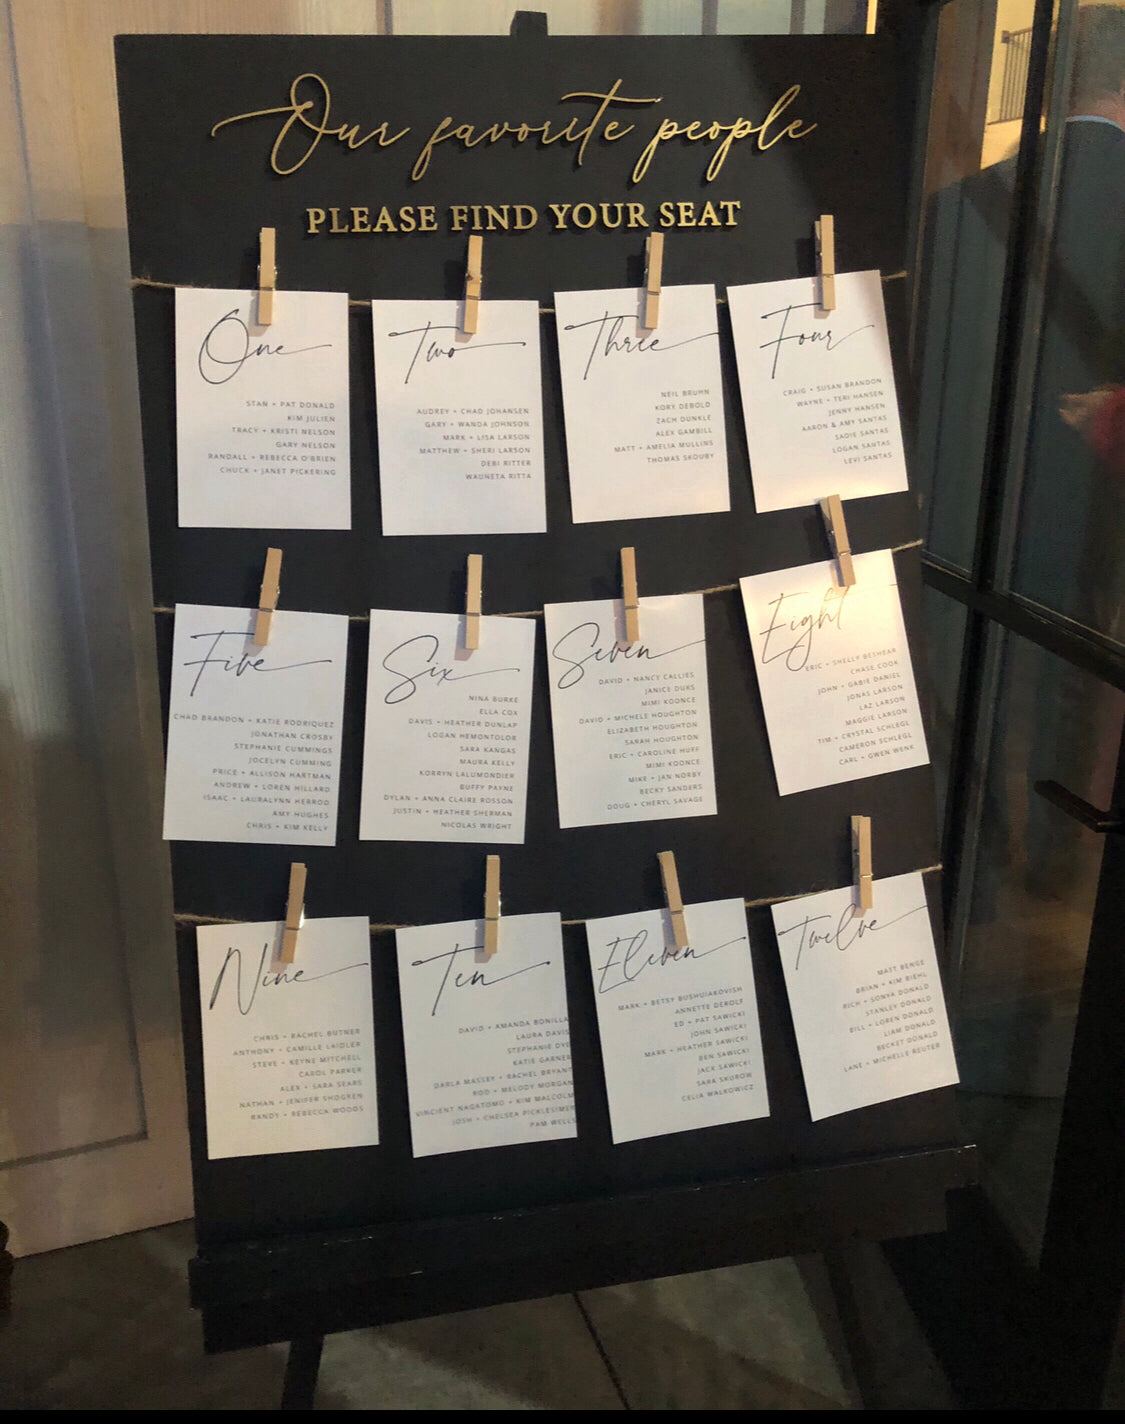 Our favorite people
PLEASE FIND YOUR SEAT
One
STAN + PAT DONALD
KIM JULIEN
TRACY + KRISTI NELSON
GARY NELSON
RANDALL + REBECCA O'BRIEN
CHUCK + JANET PICKERING
Two
AUDREY + CHAD JOHANSEN
GARY + WANDA JOHNSON
MARK + LISA LARSON
MATTHEW + SHERI LARSON
DEBI RITTER
WAUNETA RITTA
Three
NEIL BRUHN
KORY DEBOLD
ZACH DUNKLE
ALEX GAMBILL
MATT + AMELIA MULLINS
THOMAS SKOUBY
Four
CRAIG + SUSAN BRANDON
WAYNE + TERI HANSEN
JENNY HANSEN
AARON & AMY SANTAS
SADIE SANTAS
LOGAN SANTAS
LEVI SANTAS
Five
CHAD BRANDON + KATIE RODRIQUEZ
JONATHAN CROSBY
STEPHANIE CUMMINGS
JOCELYN CUMMING
PRICE + ALLISON HARTMAN
ANDREW + LOREN HILLARD
ISAAC + LAURALYNN HERROD
AMY HUGHES
CHRIS + KIM KELLY
Six
NINA BURKE
ELLA COX
DAVIS + HEATHER DUNLAP
LOGAN HEMONTOLOR
SARA KANGAS
MAURA KELLY
KORRYN LALUMONDIER
BUFFY PAYNE
DYLAN + ANNA CLAIRE ROSSON
JUSTIN + HEATHER SHERMAN
NICOLAS WRIGHT
Seven
DAVID + NANCY CALLIES
JANICE DUKS
MIMI KOONCE
DAVID + MICHELE HOUGHTON
ELIZABETH HOUGHTON
SARAH HOUGHTON
ERIC + CAROLINE HUFF
MIMI KOONCE
MIKE + JAN NORBY
BECKY SANDERS
DOUG + CHERYL SAVAGE
Eight
ERIC + SHELLY BESHEAR
CHASE COOK
JOHN + GABIE DANIEL
JONAS LARSON
LAZ LARSON
MAGGIE LARSON
TIM + CRYSTAL SCHLEGL
CAMERON SCHLEGL
CARL + GWEN WENK
Nine
CHRIS + RACHEL BUTNER
ANTHONY + CAMILLE LAIDLER
STEVE + KEYNE MITCHELL
CAROL PARKER
ALEX + SARA SEARS
NATHAN + JENIFER SHOGREN
RANDY + REBECCA WOODS
Ten
DAVID + AMANDA BONILLA
LAURA DAVIS
STEPHANIE DYE
KATIE GARNER
DARLA MASSEY + RACHEL BRYANT
ROD + MELODY MORGAN
VINCIENT NAGATOMO + KIM MALCOLM
JOSH + CHELSEA PICKLESIMER
PAM WELLS
Eleven
MARK + BETSY BUSHUIAKOVISH
ANNETTE DEROLF
ED + PAT SAWICKI
JOHN SAWICKI
MARK + HEATHER SAWICKI
BEN SAWICKI
JACK SAWICKI
SARA SKOROW
CELIA WALKOWICZ
Twelve
MAST BENGE
BRIAN + KIM RIEHL
RICH + SONYA DONALD
STANLEY DONALD
BILL + LOREN DONALD
LIAM DONALD
BECKET DONALD
LANE + MICHELLE REUTER